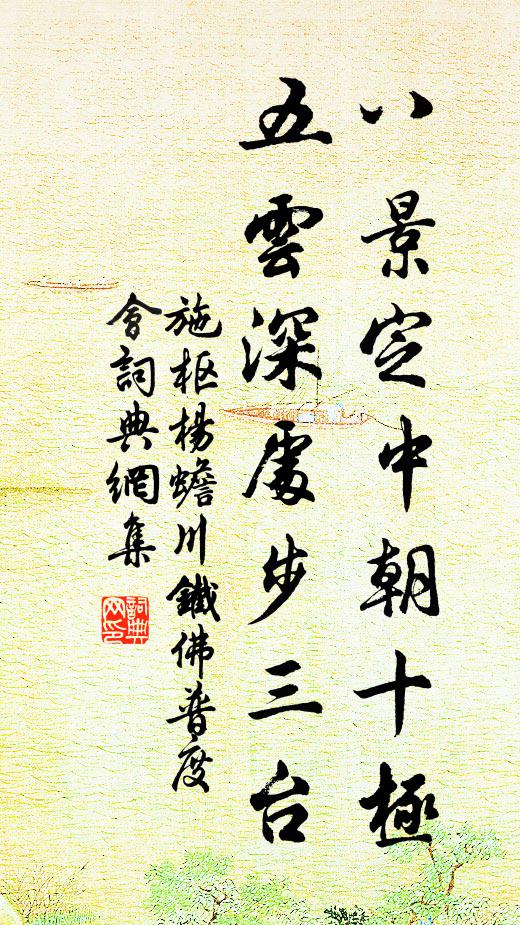 八景定中朝十極
五雲深處步三台
施枢楊蟾川鐵佛普度
會詞典網集
詞典網印